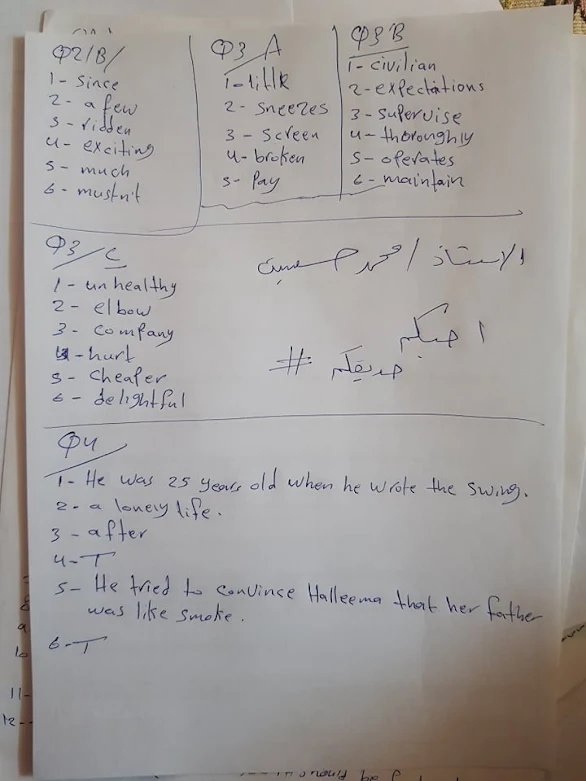 Q2/B/
1- since
2- a few
3- ridden
4- exciting
5- much
6- mustn't
Q3/A
1- little
2- sneezes
3- screen
4- broken
5- Pay
Q3 B
1- civilian
2- expectations
3- supervise
4- thoroughly
5- operates
6- maintain
Q3/C
1- unhealthy
2- elbow
3- company
4- hurt
5- cheaper
6- delightful
الاستاذ / محمد حسين
احبكم
صديقكم #
Q4
1- He was 25 years old when he wrote the swing.
2- a lonely life.
3- after
4- T
5- He tried to convince Halleema that her father
was like smoke.
6- T
11-